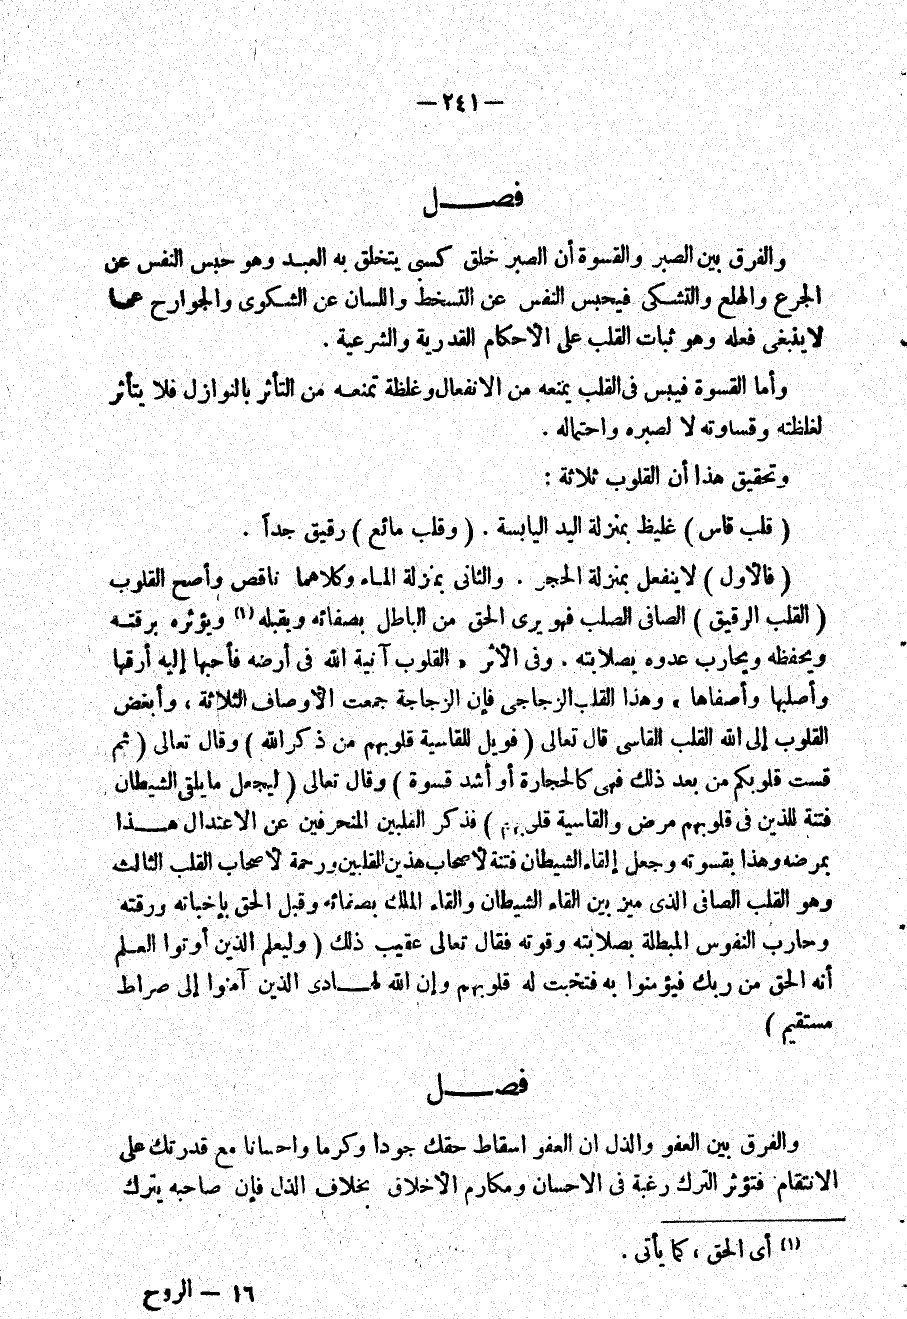 — ٢٤١ —
فصـــل
والفرق بين الصبر والقسوة أن الصبر خلق كسبى يتخلق به العبـد وهو حبس النفس عن
الجرع والهلع والتشكى فيحبس النفس عن التسخط واللسان عن الشكوى والجوارح عمـا
لاينبغى فعله وهو ثبات القلب على الأحكام القدرية والشرعية .
وأما القسوة فيبس فى القلب يمنعه من الانفعال وغلظة تمنعـه من التأثر بالنوازل فلا يتأثر
لغلظته وقساوته لا لصبره واحتماله .
وتحقيق هذا أن القلوب ثلاثة :
( قلب قاس ) غليظ بمنزلة اليد اليابسة . ( وقلب مائع ) رقيق جداً .
( فالأول ) لاينفعل بمنزلة الحجر . والثانى بمنزلة المـاء وكلاهما ناقص وأصح القلوب
( القلب الرقيق ) الصافى الصلب فهو يرى الحق من الباطل بصفائه ويقبله (١) ويؤثره برقتـه
ويحفظه ويحارب عدوه بصلابته . وفى الأثر « القلوب آنية الله فى أرضه فأحبها إليه أرقها
وأصلبها وأصفاها » وهذا القلب الزجاجى فإن الزجاجة جمعت الأوصاف الثلاثة ، وأبغض
القلوب إلى الله القلب القاسى قال تعالى ( فويل للقاسية قلوبهم من ذكر الله ) وقال تعالى ( ثم
قست قلوبكم من بعد ذلك فهى كالحجارة أو أشد قسوة ) وقال تعالى ( ليجعل مايلقى الشيطان
فتنة للذين فى قلوبهم مرض والقاسية قلوبهم ) فذكر القلبين المنحرفين عن الاعتدال هـــذا
بمرضه وهذا بقسوته وجعل إلقاء الشيطان فتنة لأصحاب هذين القلبين ورحمة لأصحاب القلب الثالث
وهو القلب الصافى الذى ميز بين القاء الشيطان والقاء الملك بصفائه وقبل الحق بإخباته ورقته
وحارب النفوس المبطلة بصلابته وقوته فقال تعالى عقيب ذلك ( وليعلم الذين أوتوا العـلم
أنه الحق من ربك فيؤمنوا به فتخبت له قلوبهم وإن الله لهـــادى الذين آمنوا إلى صراط
مستقيم )
فصـــل
والفرق بين العفو والذل ان العفو اسقاط حقك جودا وكرما واحسانا مع قدرتك على
الانتقام فتؤثر الترك رغبة فى الاحسان ومكارم الأخلاق بخلاف الذل فإن صاحبه يترك
(١) أى الحق ، كما يأتى .
١٦ — الروح